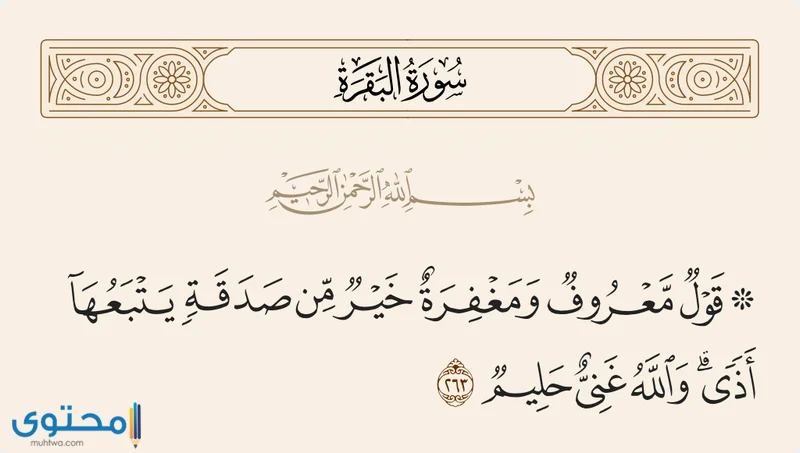 سُورَةُ البَقَرَةِ
بِسْمِ ٱللَّهِ ٱلرَّحْمَٰنِ ٱلرَّحِيمِ
۞ قَوْلٌ مَّعْرُوفٌ وَمَغْفِرَةٌ خَيْرٌ مِّن صَدَقَةٍ يَتْبَعُهَآ
أَذًى ۗ وَٱللَّهُ غَنِىٌّ حَلِيمٌ ٢٦٣
محتوى
muhtwa.com